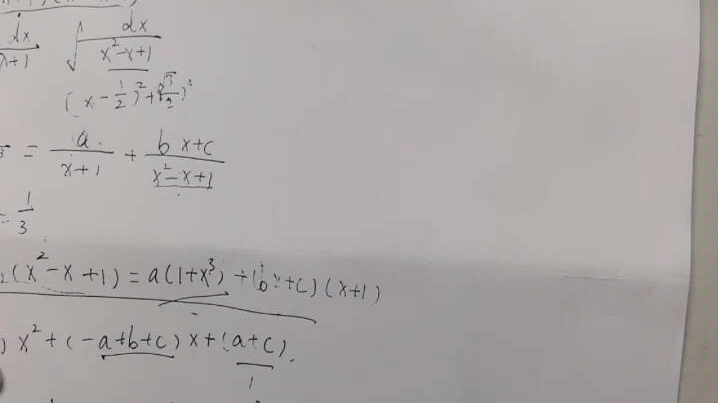 dx/x+1 ∫ dx/x²-x+1
(x-1/2)²+(√3/2)²
3 = a/x+1 + bx+c/x²-x+1
= 1/3
(x²-x+1) = a(1+x³) + (bx+c)(x+1)
) x² + (-a+b+c) x + (a+c).
1